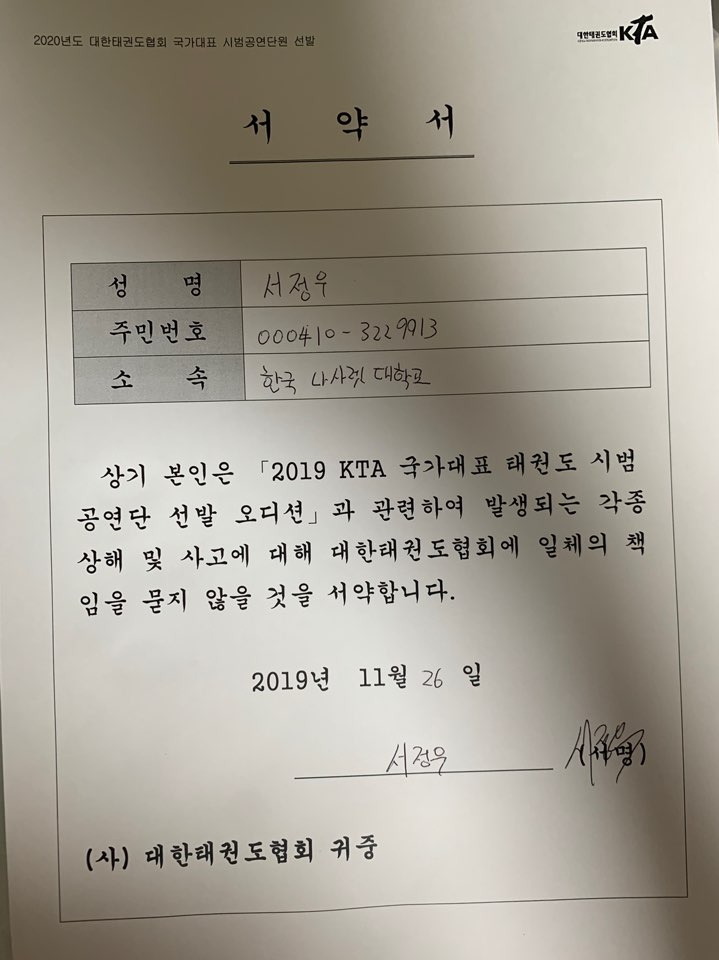 2020년도 대한태권도협회 국가대표 시범공연단원 선발
대한태권도협회 KTA
서 약 서
성 명 서정우
주민번호 000410-3229913
소 속 한국 나사렛 대학교
상기 본인은 「2019 KTA 국가대표 태권도 시범
공연단 선발 오디션」과 관련하여 발생되는 각종
상해 및 사고에 대해 대한태권도협회에 일체의 책
임을 묻지 않을 것을 서약합니다.
2019년 11월 26 일
서정우 (서명)
(사) 대한태권도협회 귀중